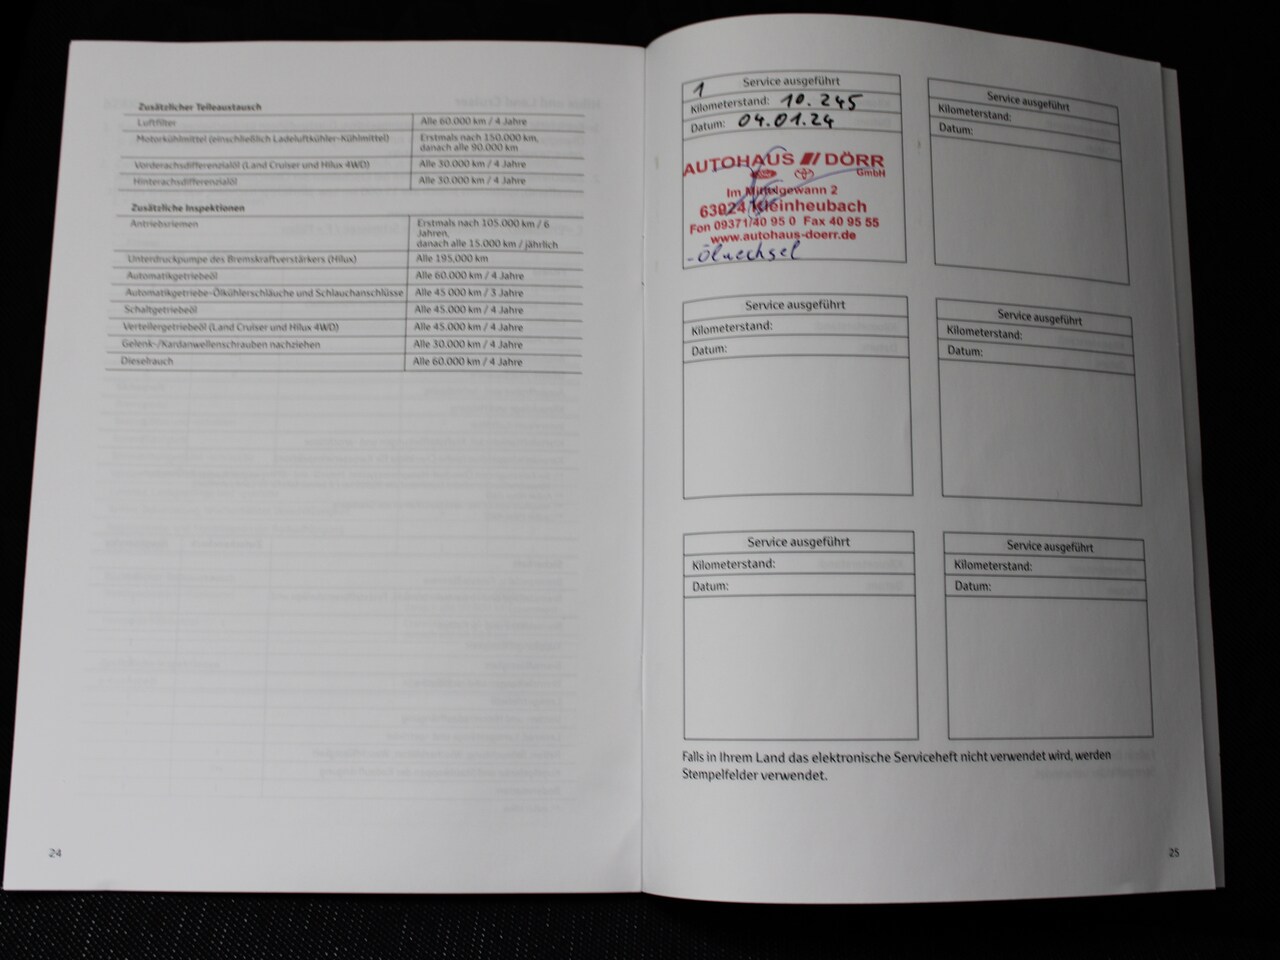 Zusätzlicher Teileaustausch
Luftfilter Alle 60.000 km / 4 Jahre
Motorkühlmittel (einschließlich Ladeluftkühler-Kühlmittel) Erstmals nach 150.000 km,
danach alle 90.000 km
Vorderachsdifferenzialöl (Land Cruiser und Hilux 4WD) Alle 30.000 km / 4 Jahre
Hinterachsdifferenzialöl Alle 30.000 km / 4 Jahre
Zusätzliche Inspektionen
Antriebsriemen Erstmals nach 105.000 km / 6
Jahren,
danach alle 15.000 km / jährlich
Unterdruckpumpe des Bremskraftverstärkers (Hilux) Alle 195.000 km
Automatikgetriebeöl Alle 60.000 km / 4 Jahre
Automatikgetriebe-Ölkühlerschläuche und Schlauchanschlüsse Alle 45 000 km / 3 Jahre
Schaltgetriebeöl Alle 45.000 km / 4 Jahre
Verteilergetriebeöl (Land Cruiser und Hilux 4WD) Alle 45.000 km / 4 Jahre
Gelenk-/Kardanwellenschrauben nachziehen Alle 30.000 km / 4 Jahre
Dieselrauch Alle 60.000 km / 4 Jahre
24
1 Service ausgeführt
Kilometerstand: 10.245
Datum: 04.01.24
AUTOHAUS DÖRR
GmbH
Im Mittelgewann 2
63924 Kleinheubach
Fon 09371/40 95 0 Fax 40 95 55
www.autohaus-doerr.de
- Ölwechsel
Service ausgeführt
Kilometerstand:
Datum:
Service ausgeführt
Kilometerstand:
Datum:
Service ausgeführt
Kilometerstand:
Datum:
Service ausgeführt
Kilometerstand:
Datum:
Service ausgeführt
Kilometerstand:
Datum:
Falls in Ihrem Land das elektronische Serviceheft nicht verwendet wird, werden
Stempelfelder verwendet.
25